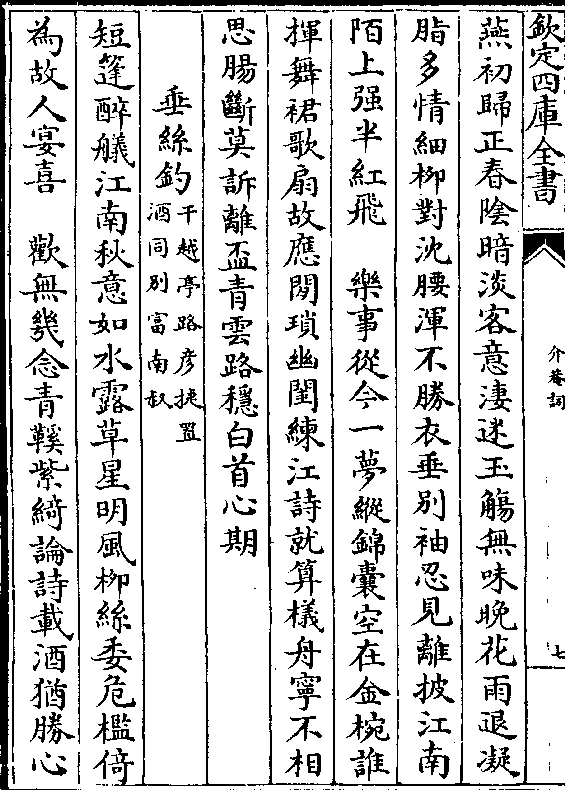 欽定四庫全書
介菴詞
七
燕初歸正春陰暗淡客意淒迷玉觴無味晚花雨退凝
脂多情細栁對沈腰渾不勝衣垂別袖忍見離披江南
陌上强半紅飛　樂事從今一夢縱錦囊空在金椀誰
揮舞裙歌扇故應閒瑣幽閨練江詩就算檥舟寧不相
思腸斷莫訴離盃青雲路穩白首心期
垂絲釣于越亭路彦捷置
酒同別富南叔
短篷醉艤江南秋意如水露草星明風栁絲委危檻倚
為故人宴喜　歡無幾念青鞵紫綺論詩載酒猶勝心